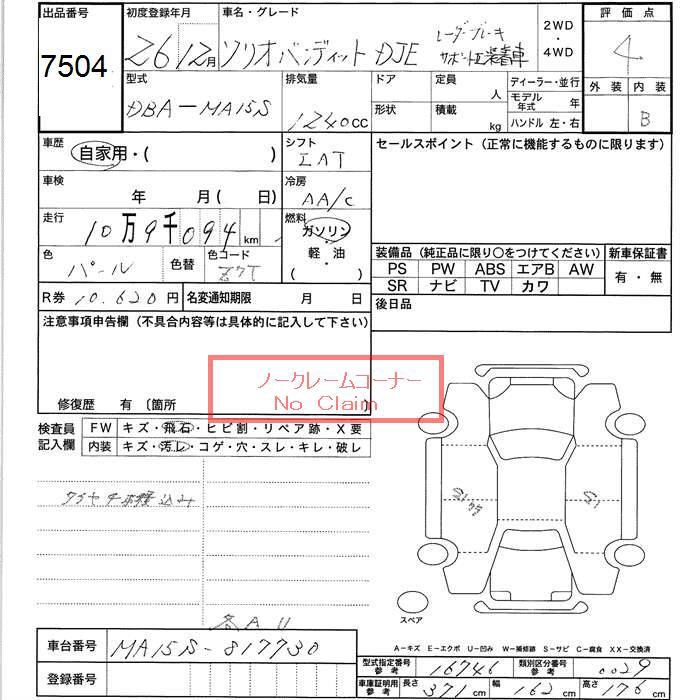 出品番号 初度登録年月 車名・グレード 2WD・4WD 評価点
7504 26 12月 ソリオバンディット DJE レーダーブレーキサポートⅡ装着車 4
型式 排気量 ドア 定員 人 ディーラー・並行 外装 内装
DBA-MA15S 1240cc 形状 積載 kg モデル年式 年 B
ハンドル 左・右
車歴 自家用・( ) シフト IAT セールスポイント (正常に機能するものに限ります)
車検 年 月 ( 日) 冷房 AA/C
走行 10万9千094km 燃料 ガソリン・軽油 ( )
色 パール 色替 色コード Z7T 装備品 (純正品に限り○をつけてください) 新車保証書
PS PW ABS エアB AW 有・無
SR ナビ TV カワ
R券 10.620円 名変通知期限 月 日 後日品
注意事項申告欄 (不具合内容等は具体的に記入して下さい)
ノークレームコーナー
No Claim
修復歴 有 〔箇所
検査員記入欄 FW キズ・飛石・ヒビ割・リペア跡・X要
内装 キズ・汚レ・コゲ・穴・スレ・キレ・破レ
各AU
スペア
A-キズ E-エクボ U-凹み W-補修跡 S-サビ C-腐食 XX-交換済
車台番号 MA15S-817730
登録番号
型式指定番号参考 16746 類別区分番号参考 0029
車庫証明用参考 長さ 371cm 幅 162cm 高さ 176cm